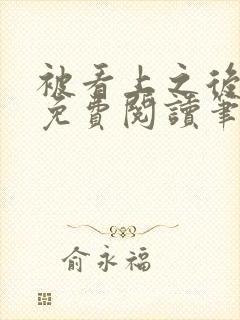 被看上之後
免費閱讀筆
俞永福